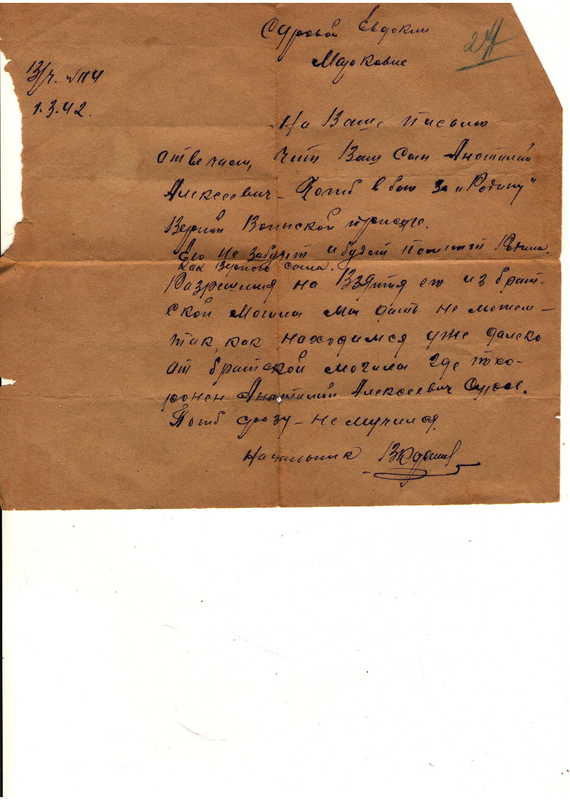 Суровой Евдокии
Марковне
24
В/ч. № 114
1.3.42.
На Ваше письмо
отвечаем, что Ваш сын Анатолий
Алексеевич – Погиб в бою за „Родину"
Верный Воинской присяге.
Его не забудет и будет помнить Родина
как верного сына.
Разрешения на Взятия его из брат-
ской могилы мы дать не можем –
так, как находимся уже далеко
от братской могилы где похо-
ронен Анатолий Алексеевич
Погиб сразу – не мучился.
Начальник